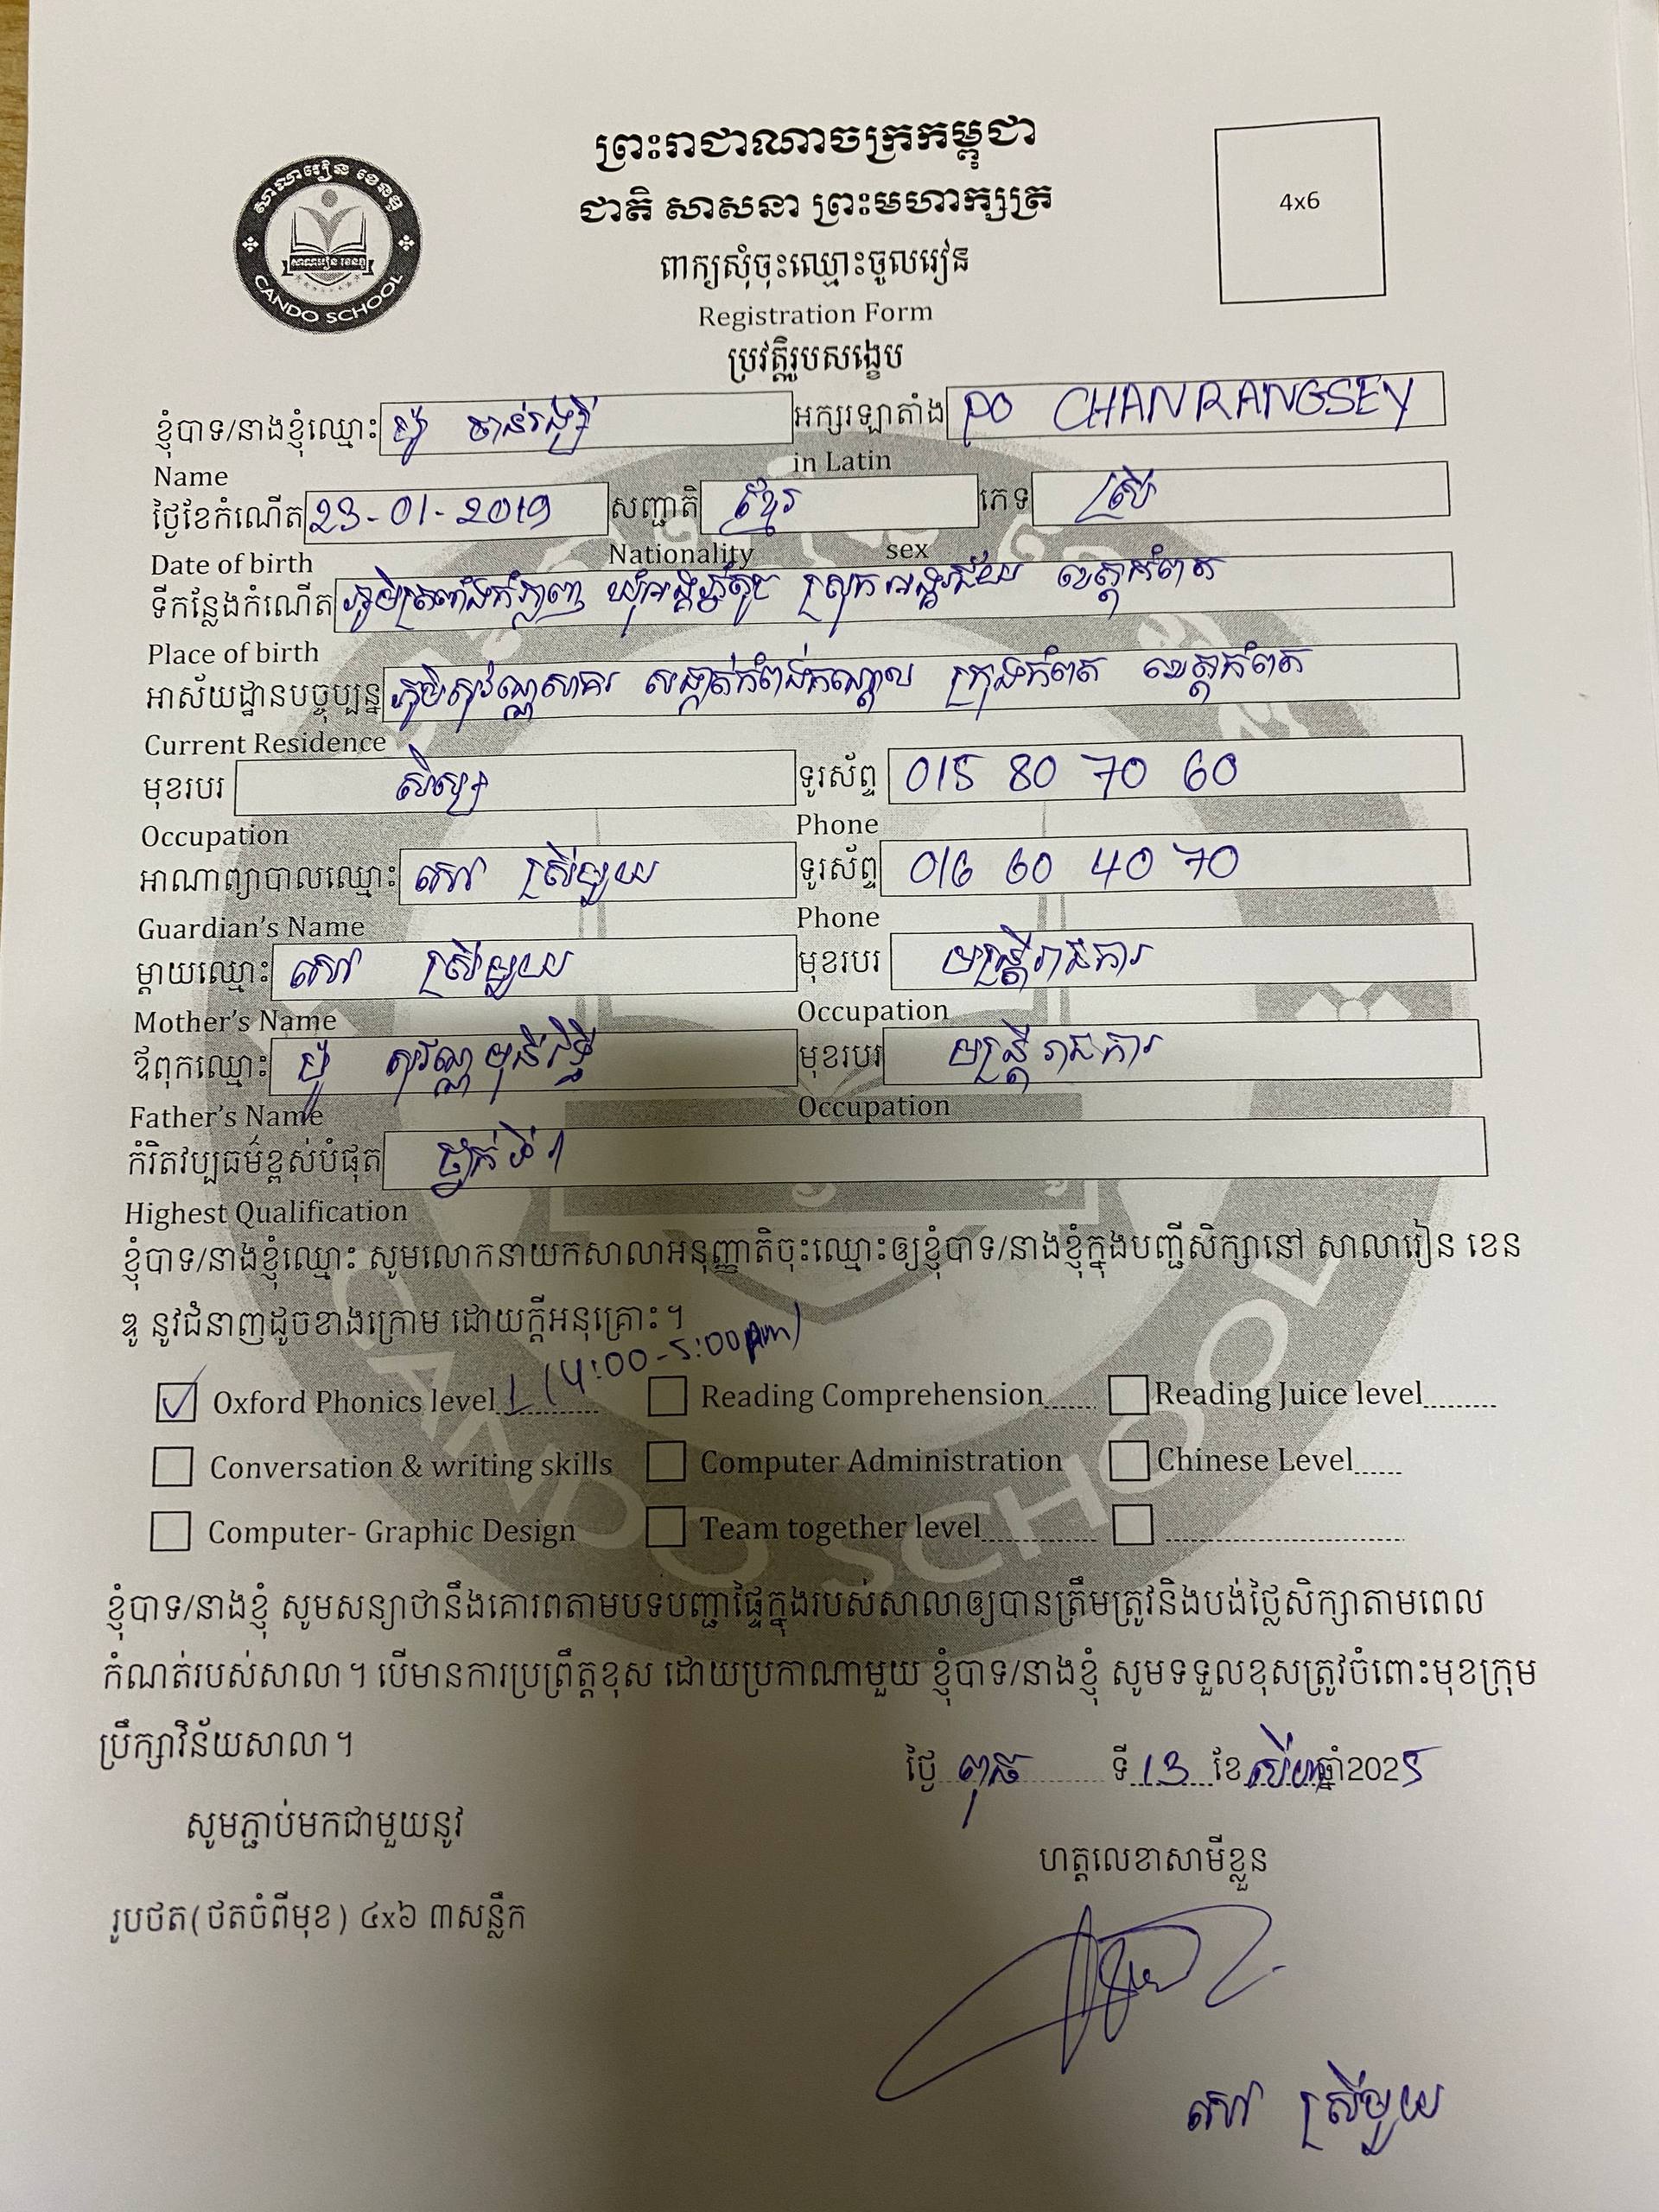 ព្រះរាជាណាចក្រកម្ពុជា
ជាតិ សាសនា ព្រះមហាក្សត្រ
សាលារៀន ខេនឌូ
CANDO SCHOOL
4x6
ពាក្យសុំចុះឈ្មោះចូលរៀន
Registration Form
ប្រវត្តិរូបសង្ខេប
ខ្ញុំបាទ/នាងខ្ញុំឈ្មោះ ប៉ូ ចាន់រង្សី អក្សរឡាតាំង PO CHANRANGSEY
Name in Latin
ថ្ងៃខែកំណើត 23-01-2019 សញ្ជាតិ ខ្មែរ ភេទ ស្រី
Date of birth Nationality sex
ទីកន្លែងកំណើត ភូមិត្រពាំងកំភ្លាញ ឃុំអង្គភ្នំតូច ស្រុកអង្គរជ័យ ខេត្តកំពត
Place of birth
អាស័យដ្ឋានបច្ចុប្បន្ន ភូមិសុវណ្ណសាគរ សង្កាត់កំពង់កណ្ដាល ក្រុងកំពត ខេត្តកំពត
Current Residence
មុខរបរ សិស្ស ទូរស័ព្ទ 015 80 70 60
Occupation Phone
អាណាព្យាបាលឈ្មោះ សៅ ស្រីមួយ ទូរស័ព្ទ 016 60 40 70
Guardian's Name Phone
ម្តាយឈ្មោះ សៅ ស្រីមួយ មុខរបរ មន្ត្រីរាជការ
Mother's Name Occupation
ឪពុកឈ្មោះ ប៉ូ សុវណ្ណមុនីរិទ្ធី មុខរបរ មន្ត្រីរាជការ
Father's Name Occupation
កំរិតវប្បធម៌ខ្ពស់បំផុត ថ្នាក់ទី១
Highest Qualification
ខ្ញុំបាទ/នាងខ្ញុំឈ្មោះ សូមលោកនាយកសាលាអនុញ្ញាតិចុះឈ្មោះឲ្យខ្ញុំបាទ/នាងខ្ញុំក្នុងបញ្ជីសិក្សានៅ សាលារៀន ខេន
ឌូ នូវជំនាញដូចខាងក្រោម ដោយក្តីអនុគ្រោះ។
Oxford Phonics level 1 (4:00-5:00pm) Reading Comprehension...... Reading Juice level.........
Conversation & writing skills Computer Administration Chinese Level......
Computer- Graphic Design Team together level.............. ..............................
ខ្ញុំបាទ/នាងខ្ញុំ សូមសន្យាថានឹងគោរពតាមបទបញ្ជាផ្ទៃក្នុងរបស់សាលាឲ្យបានត្រឹមត្រូវនិងបង់ថ្លៃសិក្សាតាមពេល
កំណត់របស់សាលា។ បើមានការប្រព្រឹត្តខុស ដោយប្រកាណាមួយ ខ្ញុំបាទ/នាងខ្ញុំ សូមទទួលខុសត្រូវចំពោះមុខក្រុម
ប្រឹក្សាវិន័យសាលា។
ថ្ងៃ ពុធ ទី 13 ខែ សីហា ឆ្នាំ2025
សូមភ្ជាប់មកជាមួយនូវ
ហត្ថលេខាសាមីខ្លួន
រូបថត(ថតចំពីមុខ) ៤x៦ ៣សន្លឹក
សៅ ស្រីមួយ